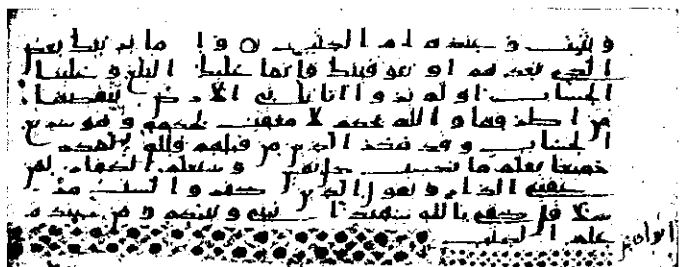 ويثبت وعنده ام الكتب وا ما نرينك بعض
الذي نعدهم او نتوفينك فانما عليك البلغ وعلينا
الحساب او لم يروا انا ناتي الارض ننقصها
من اطرفها والله يحكم لا معقب لحكمه وهو سريع
الحساب وقد مكر الذين من قبلهم فلله المكر
جميعا يعلم ما تكسب كل نفس وسيعلم الكفار لمن
عقبى الدار ويقول الذين كفروا لست مر
سلا قل كفى بالله شهيدا بيني وبينكم ومن عنده
علم الكتب